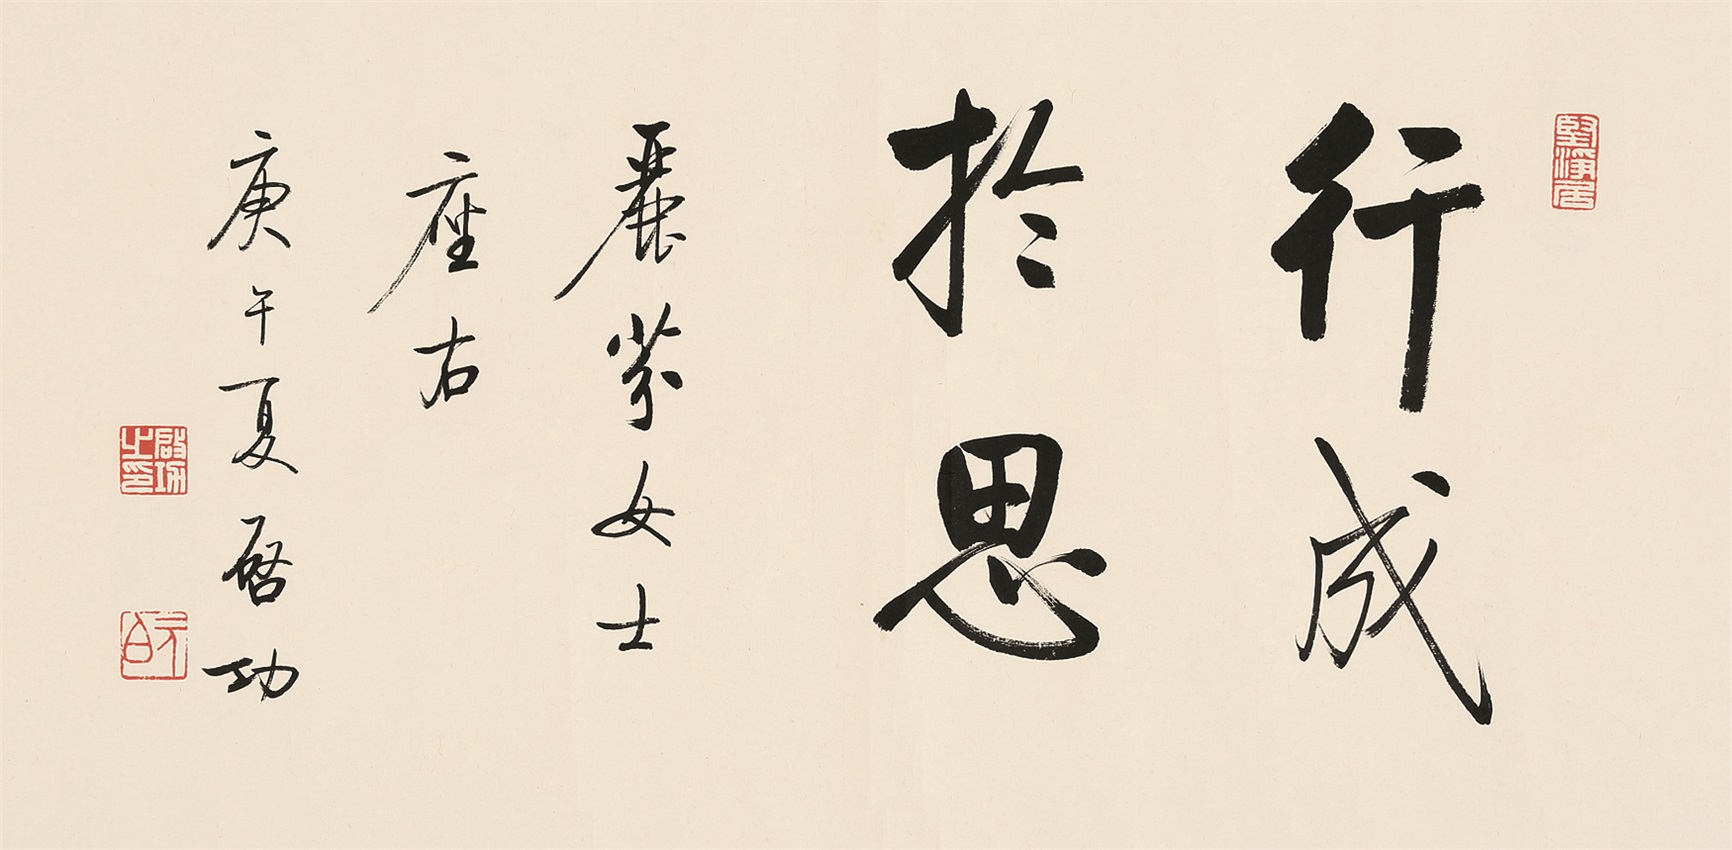 行成
於思
麗芬女士
座右
庚午夏啓功
堅淨居
啟功之印
元白